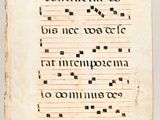 bis nec vos dese
rat in tempore ma
lo dominus de